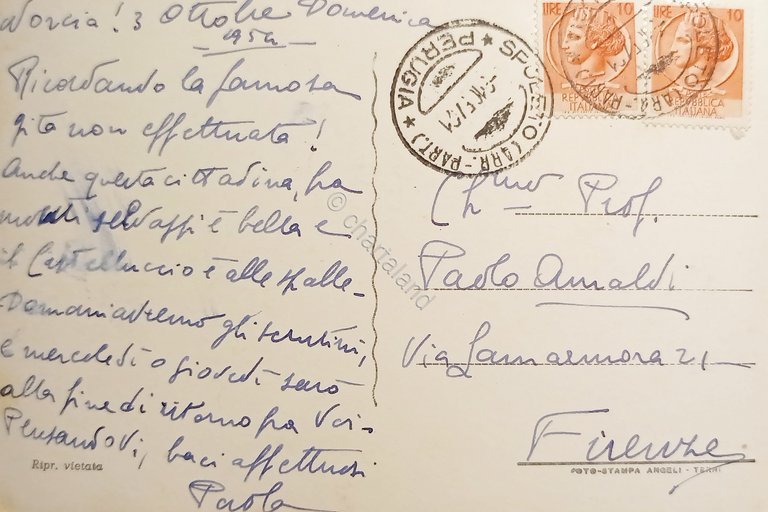 Norcia! 3 Ottobre Domenica
1954
Ricordando la famosa
gita non effettuata!
Anche questa cittadina, fra
monti selvaggi è bella e
il Castelluccio è alle spalle-
Domani avremo gli scrutini,
e mercoledì o giovedì sarò
alla fine di ritorno fra Voi-
PensandoVi, baci affettuosi
Paola
Ripr. vietata
SPOLETO (ARR.-PART.)
* PERUGIA *
LIRE 10
REPUBBLICA
ITALIANA
LIRE 10
REPUBBLICA
ITALIANA
Ch.mo Prof.
Paolo Arnaldi
Via Lamarmora 21
Firenze
FOTO-STAMPA ANGELI - TERNI
© chartaland